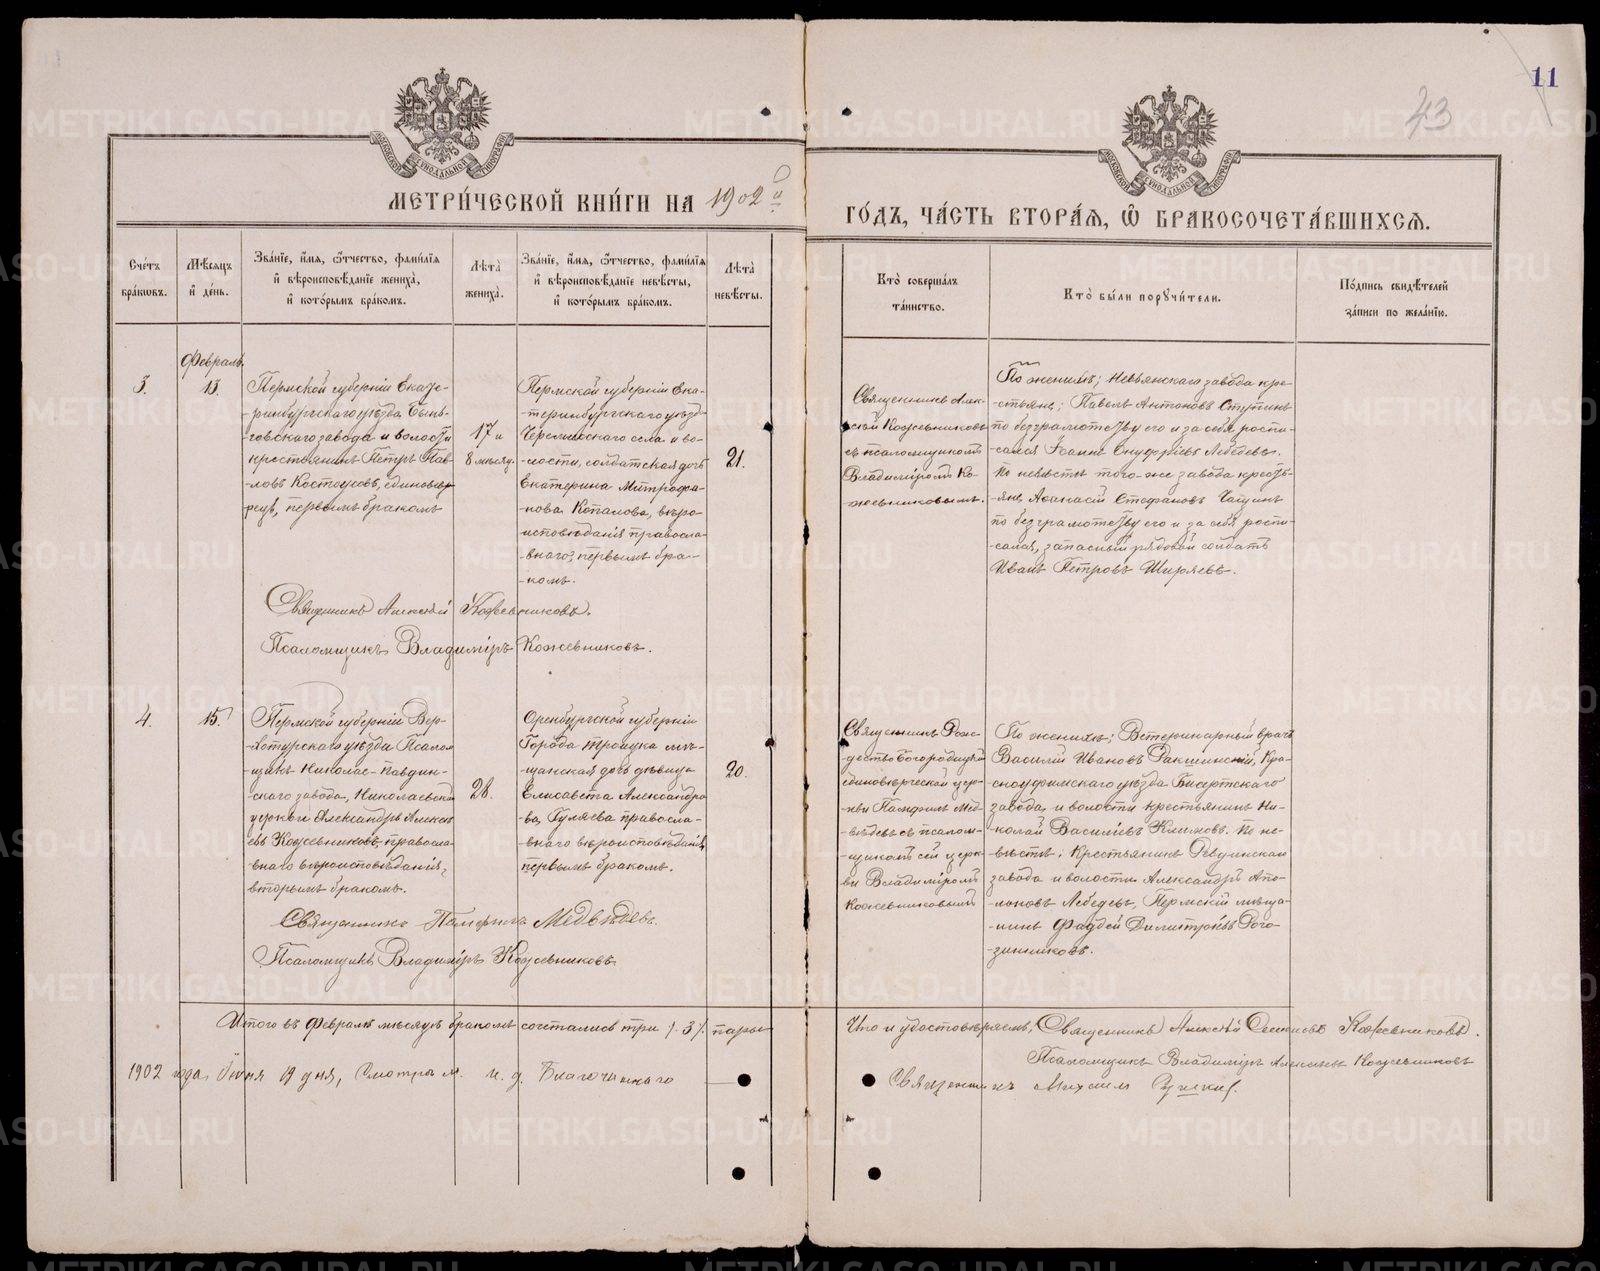 11
43
МОСКОВСКОЙ СѴНОДАЛЬНОЙ ТИПОГРАФІИ
МОСКОВСКОЙ СѴНОДАЛЬНОЙ ТИПОГРАФІИ
МЕТРИ́ЧЕСКОЙ КНИ́ГИ НА 1902 й
ГО́ДЪ, ЧА́СТЬ ВТОРА́Я, Ѽ БРАКОСОЧЕТА́ВШИХСЯ.
Сче́тъ
бра́ковъ.
Мѣ́сяцъ
и де́нь.
Зва́нїе, и́мя, ѻ́тчество, фами́лїя
и вѣроисповѣ́данїе жениха̀,
и кото́рымъ бра́комъ.
Лѣта̀
жениха̀.
Зва́нїе, и́мя, ѻ́тчество, фами́лїя
и вѣроисповѣ́данїе невѣ́сты,
и кото́рымъ бра́комъ.
Лѣта̀
невѣ́сты.
Кто̀ соверша́лъ
та́инство.
Кто̀ бы́ли порꙋчи́тели.
По́дпись свидѣ́телей
за́писи по жела́нїю.
3.
Февраль.
13.
Пермской губерніи Екате-
-ринбургскаго уѣзда Бынь-
-говскаго завода и волости
крестьянинъ Петръ Пав-
-ловъ Костоусовъ, единовѣ-
рецъ, первымъ бракомъ
17 и
8 мѣсяц.
Пермской губерніи Ека-
-теринбургскаго уѣзда
Черемисскаго села и во-
-лости, солдатская дочь
Екатерина Митрофа-
-нова Копалова, вѣро-
исповѣданія правосла-
-внаго, первымъ бра-
-комъ.
21.
Священникъ Алек-
сѣй Кожевниковъ
съ псаломщикомъ
Владиміромъ Ко-
жевниковымъ.
По женихѣ; Невьянскаго завода кре-
-стьянъ; Павелъ Антоновъ Ступинъ
по безграмотству его и за себя роспи-
-сался Іоаннъ Онуфріевъ Лебедевъ.
По невѣстѣ того-же завода кресть-
-янъ, Афанасій Стефановъ Чащинъ
по безграмотству его и за себя роспи-
-сался, запасный рядовой солдатъ
Иванъ Петровъ Ширяевъ.
Священникъ Алексѣй Кожевниковъ.
Псаломщикъ Владиміръ Кожевниковъ.
4.
15.
Пермской губерніи Вер-
-хотурскаго уѣзда Псалом-
-щикъ Николае-Павдин-
-скаго завода, Николаевской
церкви Александръ Алексѣ-
евъ Кожевниковъ правосла-
внаго вѣроисповѣданія,
вторымъ бракомъ.
28.
Оренбургской губерніи
Города Троицка мѣ-
-щанская дочь дѣвица
Елисавета Александро-
ва, Гуляева правосла-
-внаго вѣроисповѣданія,
первымъ бракомъ.
20.
Священникъ Рож-
дество Богородицкой
единовѣрческой цер-
-кви Памфилъ Мед-
-вѣдевъ съ псалом-
-щикомъ сей церк-
ви Владиміромъ
Кожевниковымъ
По женихѣ; Ветеринарный врачъ
Василій Ивановъ Ракшинскій, Кра-
сноуфимскаго уѣзда Бисертскаго
завода, и волости крестьянинъ Ни-
-колай Васильевъ Климовъ. По не-
вѣстѣ. Крестьянинъ Ревдинскаго
завода и волости Александръ Апо-
-лоновъ Лебедевъ, Пермскій мѣща-
-нинъ Фаддей Димитріевъ Рого-
-зинниковъ.
Священникъ Памфилъ Медвѣдевъ.
Псаломщикъ Владиміръ Кожевниковъ.
Итого въ Февралѣ мѣсяцѣ бракомъ сочетались три /.3/. пары
Что и удостовѣряемъ, Священникъ Алексѣй Кожевниковъ.
Псаломщикъ Владиміръ Кожевниковъ
1902 года Іюня 19 дня, Смотрѣлъ и. д. Благочиннаго
Священникъ Михаилъ
METRIKI.GASO-URAL.RU